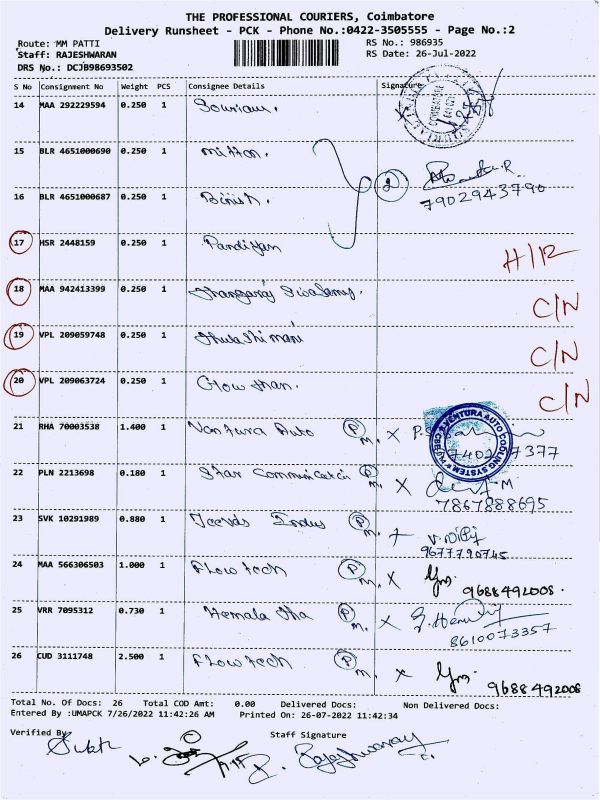 THE PROFESSIONAL COURIERS, Coimbatore
Delivery Runsheet - PCK - Phone No.:0422-3505555 - Page No.:2
Route: MM PATTI RS No.: 986935
Staff: RAJESHWARAN RS Date: 26-Jul-2022
DRS No.: DCJB98693502
S No Consignment No Weight PCS Consignee Details Signature
14 MAA 292229594 0.250 1
15 BLR 4651000690 0.250 1
16 BLR 4651000687 0.250 1 2
7902943790
17 HSR 2448159 0.250 1 Pandiyan H/R
18 MAA 942413399 0.250 1 C/N
19 VPL 209059748 0.250 1 C/N
20 VPL 209063724 0.250 1 C/N
21 RHA 70003538 1.400 1 Ventura Auto P M. X
VENTURA AUTO COOLING SYSTEM
22 PLN 2213698 0.180 1 Star P M. X
7867888695
23 SVK 10291989 0.880 1 P M.
9677790745
24 MAA 566306503 1.000 1 Flow tech P M. X 9688492008.
25 VRR 7095312 0.730 1 P M. X
8610073357
26 CUD 3111748 2.500 1 Flow tech P M. X 9688492008
Total No. Of Docs: 26 Total COD Amt: 0.00 Delivered Docs: Non Delivered Docs:
Entered By :UMAPCK 7/26/2022 11:42:26 AM Printed On: 26-07-2022 11:42:34
Verified By Staff Signature